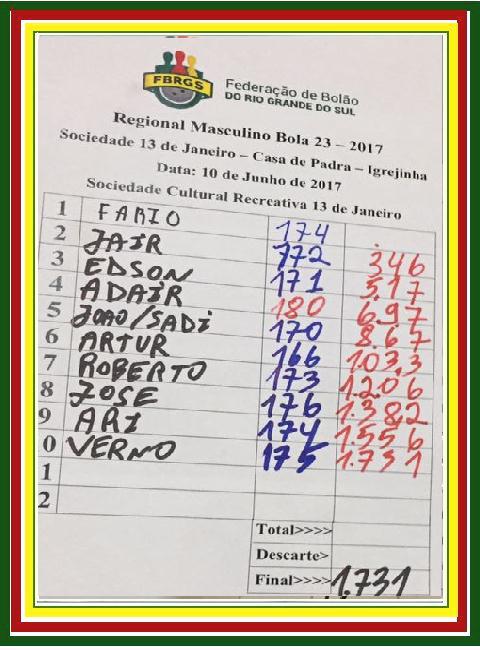 FBRGS
Federação de Bolão
DO RIO GRANDE DO SUL
Regional Masculino Bola 23 – 2017
Sociedade 13 de Janeiro – Casa de Padra – Igrejinha
Data: 10 de Junho de 2017
Sociedade Cultural Recreativa 13 de Janeiro
1 FABIO 174
2 JAIR 172 346
3 EDSON 171 517
4 ADAIR 180 697
5 JOAO/SADI 170 867
6 ARTUR 166 1033
7 ROBERTO 173 1.206
8 JOSE 176 1.382
9 ARI 174 1.556
0 VERNO 175 1.731
1
2
Total>>>>
Descarte>
Final>>>> 1.731